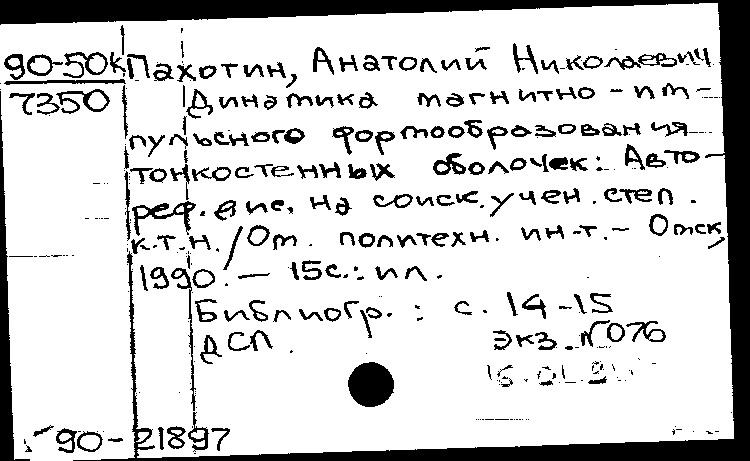 90-50к Пахотин, Анатолий Николаевич
7350 Динамика магнитно-им-
пульсного формообразования
тонкостенных оболочек: Авто-
реф. дис. на соиск. учен. степ.
к.т.н. / Ом. политехн. ин-т. - Омск,
1990. - 15с.: ил.
Библиогр.: с. 14-15
ДСП. экз. N076
16.01.91
90-21897